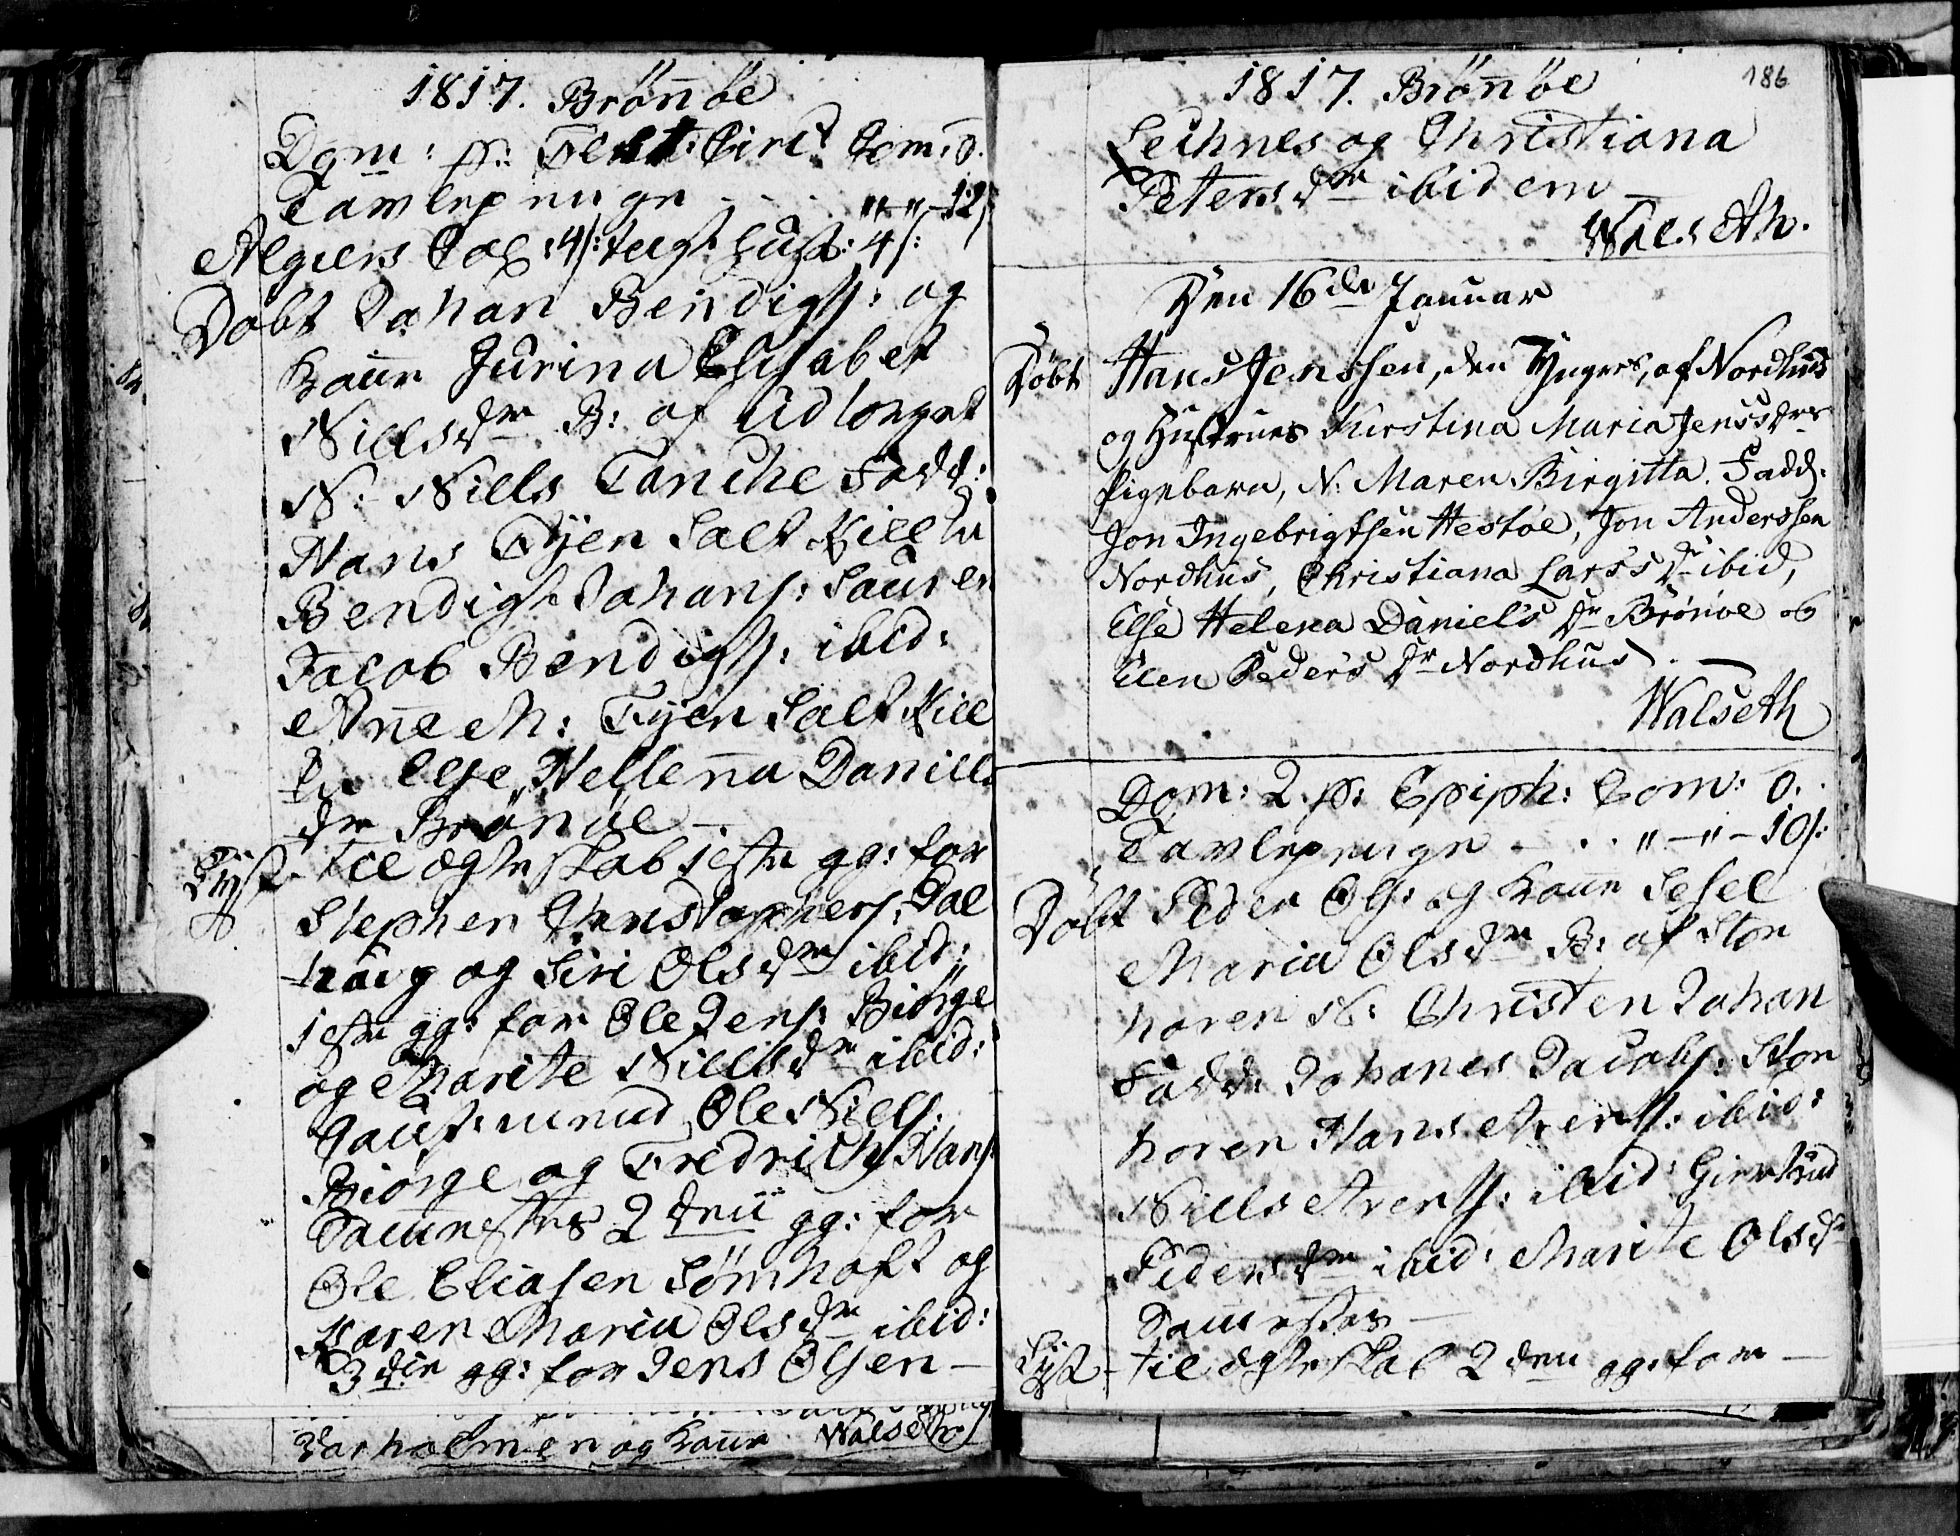 1817. Brönöe
Dom: p: Fest: Circ: Com: 0.
Tavlepenge - - - " - " - 12 s
Algiers Cas: 4 s: 4 s:
Döbt Johan Bendigs: og
Kone Jurina Elisabet
Nillsdr B: af
N: Nills Tanche Fadd:
Hans Tÿen Salt
Bendigt Johans: Sauren
Jacob Bendigs: ibid:
Anne M: Tÿen Salt
Else Hellena Daniels
dr Brönöe -
Lÿst - til ægteskab 1ste gg: for
Stephen Christophers: Dal
og Siri Olsdr ibid:
1ste gg: for Ole Jens: Biörge
og Marite Nillsdr ibid:
Ole Niels:
Biörge og Fredrich Hans:
2den gg: for
Ole Eliasen Sömhoft og
Karen Maria Olsdr ibid:
3die gg: for Jens Olsen -
og Kone Walseth
1817. Brönöe
186
Leihnes og Christiana
Petersdr ibidem -
Walseth.
Den 16de Januar
Döbt Hans Jenssen, den Yngres, af Nordhus
og Hustrues Kirstina Maria Jensdrs
Pigebarn, N. Maren Birgitta. Fadd:
Jon Ingebrigtsen Hestøe, Jon Anderssen
Nordhus, Christiana Larsdr ibid,
Else Helena Daniels dr Brönöe og
Elen Peders dr Nordhus. -
Walseth
Dom: 2. p: Epiph: Com: 0.
Tavlepenge - . . " - " - 10 s:
Döbt Peder Ols: og Kone Sesel
Maria Olsdr B: af Stor
horen N: Christen Johan
Fadd: Johanes Jacobs: Stor
horen Hans Arents: ibid:
Nills Arents: ibid: Giertrud
Pedersdr ibid: Marite Olsdr
Lÿst - til ægteskab 2den gg: for -